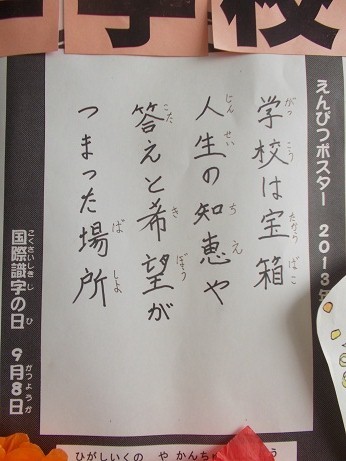 学校
えんぴつポスター 2013年
学校は宝箱
人生の知恵や
答えと希望が
つまった場所
国際識字の日 9月8日
ひがしいくの やかんちゅう